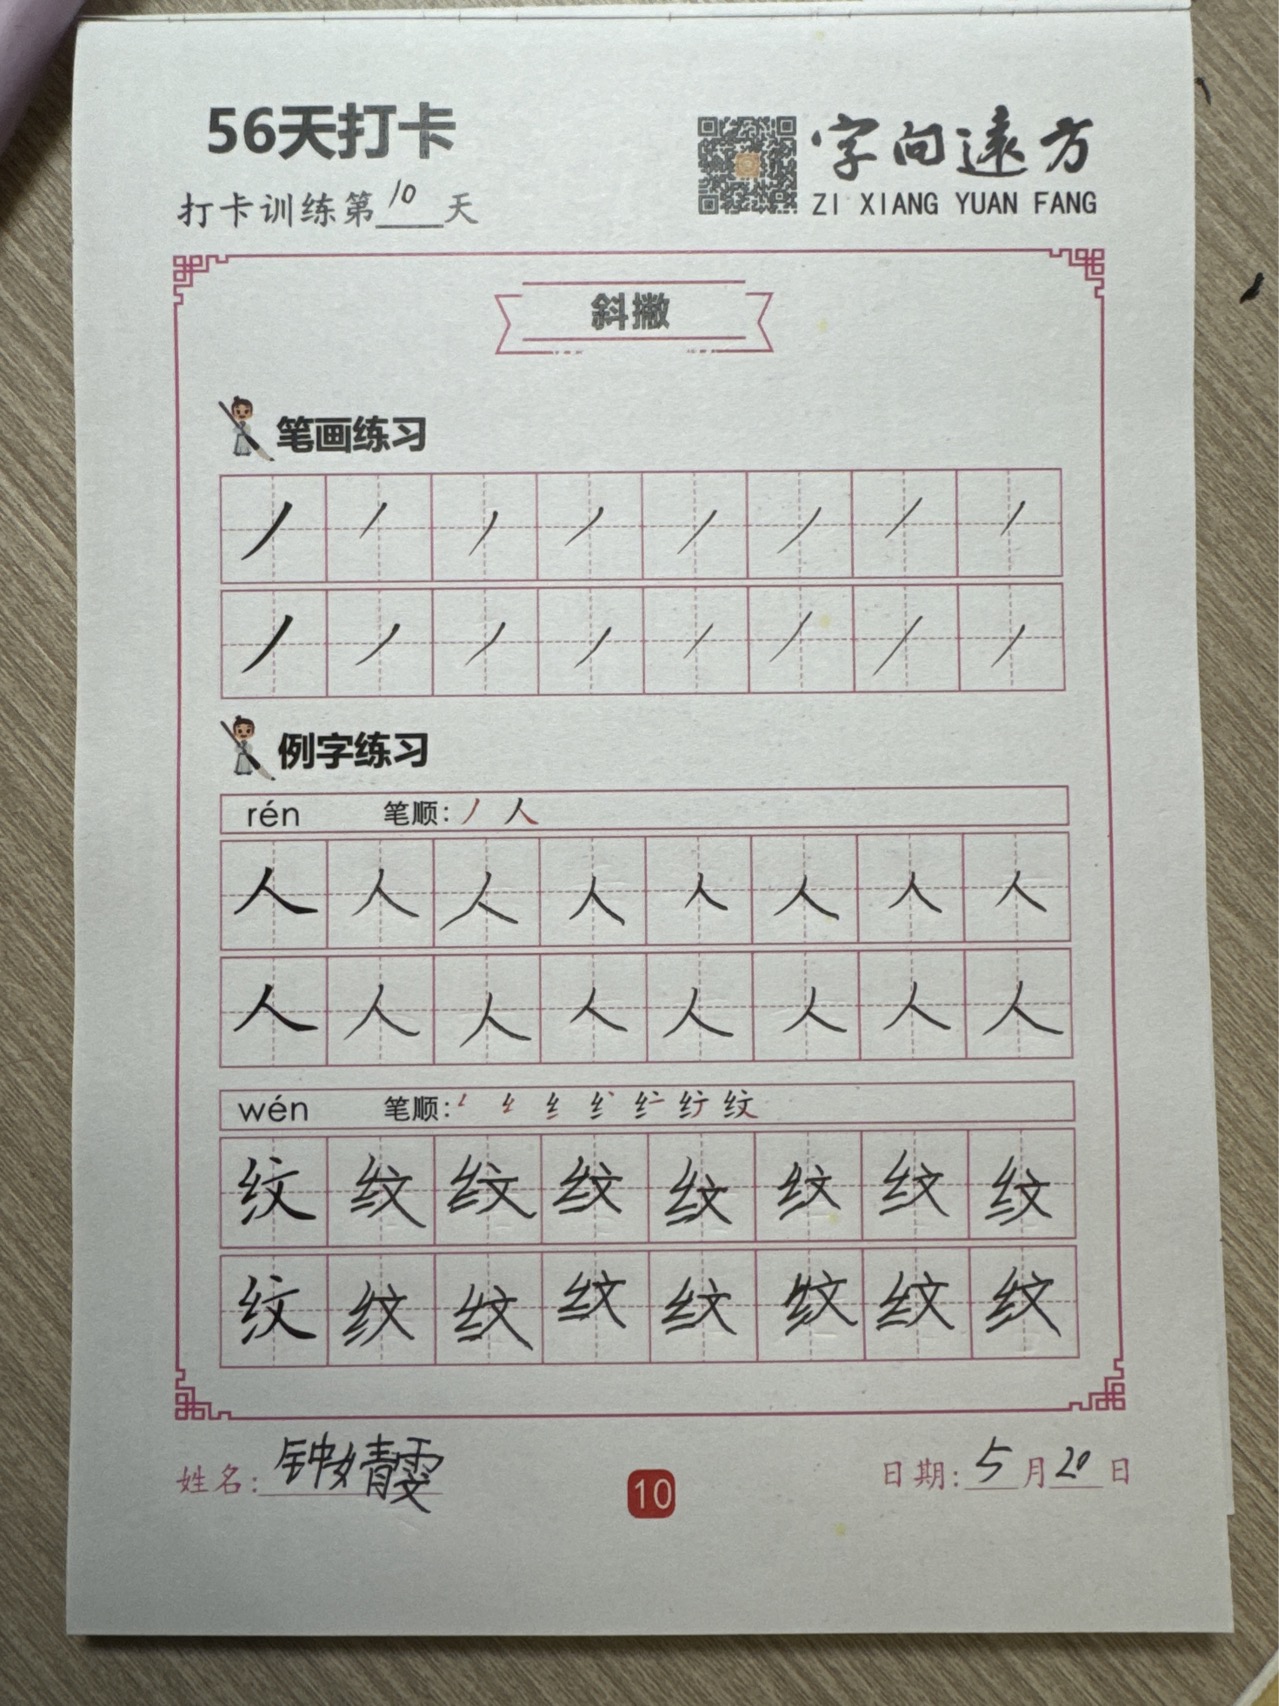 56天打卡
打卡训练第10天
字向远方
ZI XIANG YUAN FANG
斜撇
笔画练习
丿丿丿丿丿丿丿丿
丿丿丿丿丿丿丿丿
例字练习
rén 笔顺: 丿 人
人人人人人人人人
人人人人人人人人
wén 笔顺: 纹
纹纹纹纹纹纹纹纹
纹纹纹纹纹纹纹纹
姓名: 钟婧雯
10
日期: 5月20日